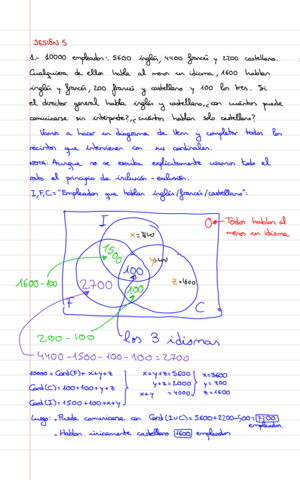 SESIÓN 5
1.- 10000 empleados: 5600 inglés, 4400 francés y 2200 castellano.
Cualquiera de ellos habla al menos un idioma, 1600 hablan
inglés y francés, 200 francés y castellano y 100 los tres. Si
el director general habla inglés y castellano, ¿con cuántos puede
comunicarse sin intérprete?, ¿cuántos hablan solo castellano?
Vamos a hacer un diagrama de Venn y completar todos los
recintos que intervienen con sus cardinales.
NOTA: Aunque no se escriba explícitamente usamos todo el
rato el principio de inclusión-exclusión:
I,F,C="Empleados que hablan inglés/francés/castellano".
I
0 → Todos hablan al
menos un idioma
x=3600
1500
y=400
100
1600-100
2700
100
z=1600
F
C
200-100
los 3 idiomas
4400-1500-100-100=2700
10000=Card(F)+x+y+z
Card(C)=100+100+y+z
Card(I)=1500+100+x+y
x+y+z=5600
y+z=2000
x+y =4000
x=3600
y=400
z=1600
Luego: - Puede comunicarse con Card(I∪C)=5600+2200-500=7300
empleados.
- Hablan únicamente castellano 1600 empleados